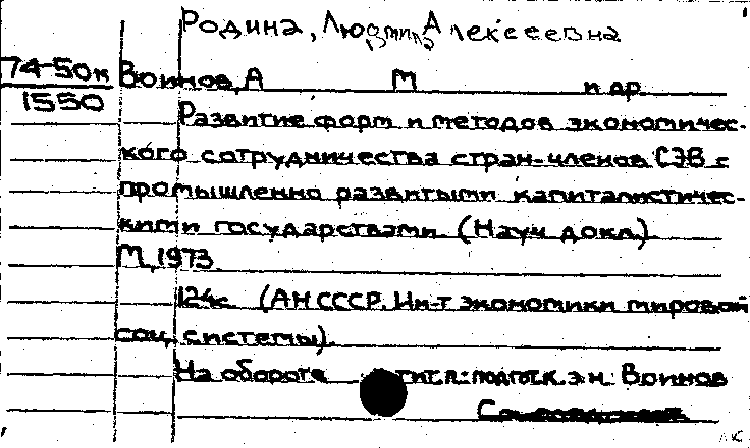 Родина, Людмила Алексеевна
74-50к Воинов, А М и др.
1550
Развитие форм и методов экономичес-
кого сотрудничества стран-членов СЭВ с
промышленно развитыми капиталистичес-
кими государствами. (Науч. докл.)
М., 1973.
124с. (АН СССР. Ин-т экономики мировой
соц. системы).
На обороте тит.л.: подгот.к.э.н. Воинов